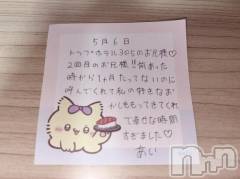 5月6日
トップホテル305のお兄様♡
2回目のお兄様!!前あった
時から1ヶ月たってないのに
呼んでくれて私の好きなお
かしももってきてくれ
て幸せな時間
すぎました♡
あい